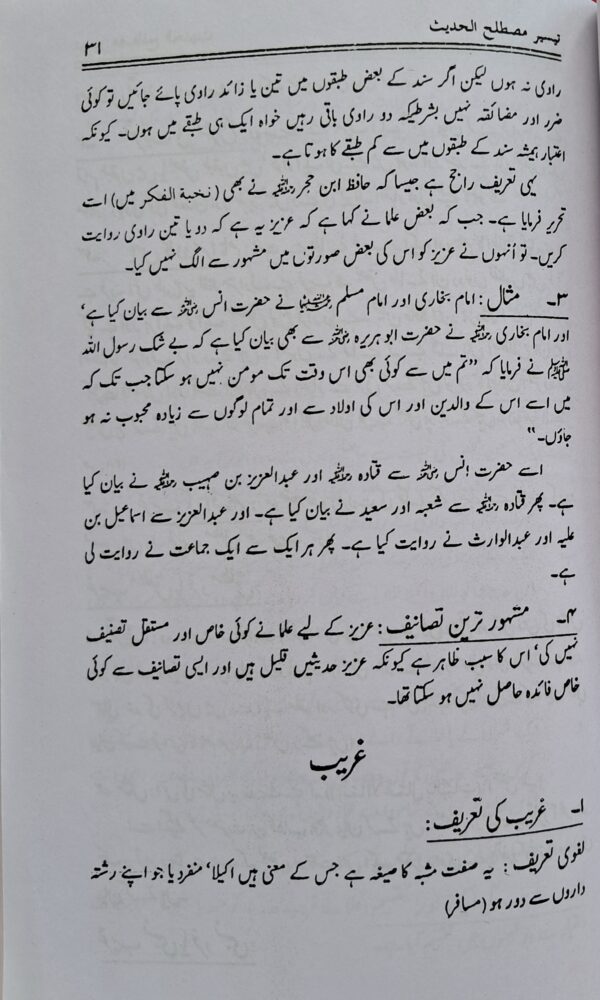 تیسیر مصطلح الحدیث
۳۱
راوی نہ ہوں لیکن اگر سند کے بعض طبقوں میں تین یا زائد راوی پائے جائیں تو کوئی
ضرر اور مضائقہ نہیں بشرطیکہ دو راوی باقی رہیں خواہ ایک ہی طبقے میں ہوں۔ کیونکہ
اعتبار ہمیشہ سند کے طبقوں میں سے کم طبقے کا ہوتا ہے۔
یہی تعریف راجح ہے جیسا کہ حافظ ابن حجر رحمہ اللہ نے بھی (نخبة الفکر میں) اسے
تحریر فرمایا ہے۔ جب کہ بعض علما نے کہا ہے کہ عزیز یہ ہے کہ دو یا تین راوی روایت
کریں۔ تو انہوں نے عزیز کو اس کی بعض صورتوں میں مشہور سے الگ نہیں کیا۔
۳۔ مثال: امام بخاری اور امام مسلم نے حضرت انس رضی اللہ عنہ سے بیان کیا ہے‘
اور امام بخاری رحمہ اللہ نے حضرت ابو ہریرہ رضی اللہ عنہ سے بھی بیان کیا ہے کہ بے شک رسول اللہ
ﷺ نے فرمایا کہ ”تم میں سے کوئی بھی اس وقت تک مومن نہیں ہو سکتا جب تک کہ
میں اسے اس کے والدین اور اس کی اولاد سے اور تمام لوگوں سے زیادہ محبوب نہ ہو
جاؤں۔“
اسے حضرت انس رضی اللہ عنہ سے قتادہ رحمہ اللہ اور عبدالعزیز بن صہیب رحمہ اللہ نے بیان کیا
ہے۔ پھر قتادہ رحمہ اللہ سے شعبہ اور سعید نے بیان کیا ہے۔ اور عبدالعزیز سے اسماعیل بن
علیہ اور عبدالوارث نے روایت کیا ہے۔ پھر ہر ایک سے ایک جماعت نے روایت لی
ہے۔
۴۔ مشہور ترین تصانیف: عزیز کے لیے علما نے کوئی خاص اور مستقل تصنیف
نہیں کی‘ اس کا سبب ظاہر ہے کیونکہ عزیز حدیثیں قلیل ہیں اور ایسی تصانیف سے کوئی
خاص فائدہ حاصل نہیں ہو سکتا تھا۔
غریب
۱۔ غریب کی تعریف:
لغوی تعریف: یہ صفت مشبہ کا صیغہ ہے جس کے معنی ہیں اکیلا‘ منفرد یا جو اپنے رشتہ
داروں سے دور ہو (مسافر)